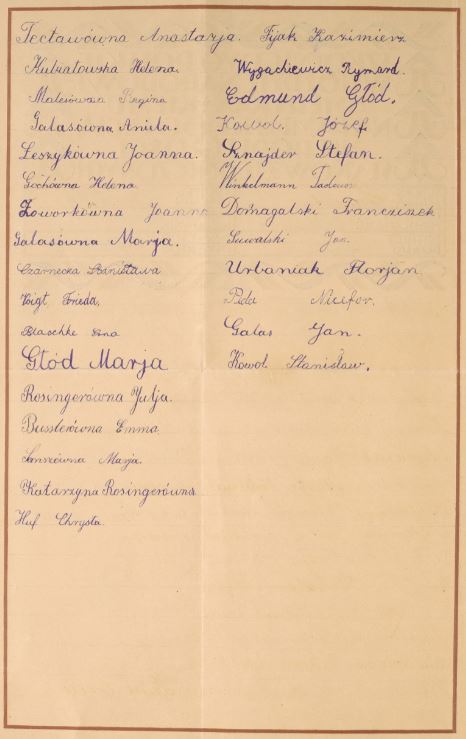 Tectawówna Anastazja.
Kubatowska Helena.
Regina
Galasówna Aniela.
Leszykówna Joanna.
Gochówna Helena
Zoworkówna Joanna
Galasówna Marja.
Czarnecka Stanisława
Voigt Frieda.
Blaschke Anna
Głód Marja
Rosingerówna Julja.
Busslerówna Emma
Marja.
Katarzyna Rosingerówna
Huf Chrysta
Fijak Kazimierz
Wygachiewicz Rymard.
Edmund Głód.
Kowol Józef
Sznajder Stefan.
Winkelmann Tadeusz
Domagalski Franciszek
Suwalski Jan.
Urbaniak Florjan
Nicefor.
Galas Jan.
Kowol Stanisław.